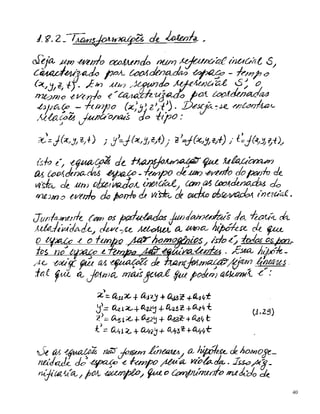 1.8.2_ Transformações de Lorentz.
Seja um evento ocorrendo num referencial inercial S,
caracterizado por coordenadas espaço - tempo
(x,y,z,t). Em um segundo referencial S', o
mesmo evento é caracterizado por coordenadas
espaço - tempo (x',y',z',t'). Deseja-se encontrar
relações funcionais do tipo:
x'=f(x,y,z,t) ; y'=f(x,y,z,t) ; z'=f(x,y,z,t) ; t'=f(x,y,z,t),
isto é, equações de transformação que relacionam
as coordenadas espaço-tempo de um evento do ponto de
vista de um observador inercial, com as coordenadas do
mesmo evento do ponto de vista de outro observador inercial.
Juntamente com os postulados fundamentais da teoria da
relatividade, deve-se recorrer a uma hipótese de que
o espaço e o tempo são homogêneos, isto é, todos os pon_
tos no espaço e tempo são equivalentes. Essa hipóte_
se exige que as equações de transformação sejam lineares
tal que a forma mais geral que podem assumir é:
x'= a11x + a12y + a13z + a14t
y'= a21x + a22y + a23z + a24t
z'= a31x + a32y + a33z + a34t
t'= a41x + a42y + a43z + a44t
(1.29)
Se as equações não fossem lineares, a hipótese de homoge_
neidade do espaço e tempo seria violada. Isso sig_
nificaria, por exemplo, que o comprimento medido de
40